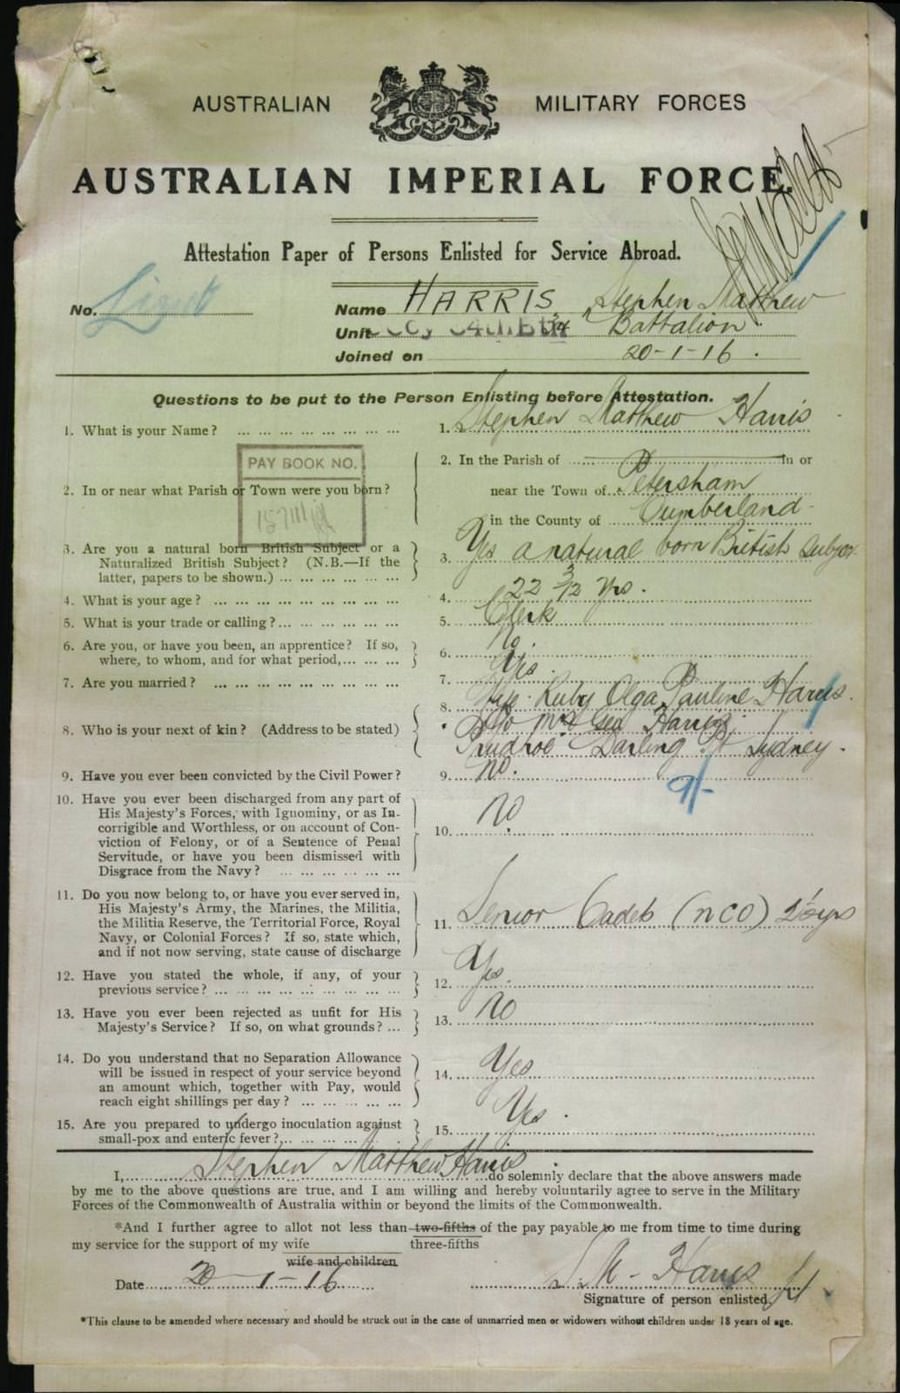 AUSTRALIAN MILITARY FORCES
AUSTRALIAN IMPERIAL FORCE.
Attestation Paper of Persons Enlisted for Service Abroad.
No. Lieut Name HARRIS, Stephen Matthew
Unit 34th Battalion
Joined on 20-1-16.
Questions to be put to the Person Enlisting before Attestation.
1. What is your Name? ... 1. Stephen Matthew Harris
PAY BOOK NO.
2. In or near what Parish or Town were you born? 2. In the Parish of ... in or
near the Town of Petersham
in the County of Cumberland
3. Are you a natural born British Subject or a 3. Yes a natural born British Subject
Naturalized British Subject? (N.B.—If the
latter, papers to be shown.) ...
4. What is your age? ... 4. 22 3/12 yrs.
5. What is your trade or calling? ... 5. Clerk
6. Are you, or have you been, an apprentice? If so, 6. No.
where, to whom, and for what period, ...
7. Are you married? ... 7. Yes.
8. Who is your next of kin? (Address to be stated) 8. Ruby Olga Pauline Harris.
Mrs Geo Harris
Prudhoe Darling Pt Sydney.
9. Have you ever been convicted by the Civil Power? 9. No.
10. Have you ever been discharged from any part of
His Majesty's Forces, with Ignominy, or as In-
corrigible and Worthless, or on account of Con-
viction of Felony, or of a Sentence of Penal
Servitude, or have you been dismissed with
Disgrace from the Navy? ... 10. No
11. Do you now belong to, or have you ever served in,
His Majesty's Army, the Marines, the Militia,
the Militia Reserve, the Territorial Force, Royal
Navy, or Colonial Forces? If so, state which,
and if not now serving, state cause of discharge 11. Senior Cadets (NCO) yrs
12. Have you stated the whole, if any, of your
previous service? ... 12. Yes.
13. Have you ever been rejected as unfit for His
Majesty's Service? If so, on what grounds? ... 13. No
14. Do you understand that no Separation Allowance
will be issued in respect of your service beyond
an amount which, together with Pay, would
reach eight shillings per day? ... 14. Yes
15. Are you prepared to undergo inoculation against
small-pox and enteric fever? ... 15. Yes.
I, Stephen Matthew Harris do solemnly declare that the above answers made
by me to the above questions are true, and I am willing and hereby voluntarily agree to serve in the Military
Forces of the Commonwealth of Australia within or beyond the limits of the Commonwealth.
*And I further agree to allot not less than two-fifths of the pay payable to me from time to time during
my service for the support of my wife three-fifths
wife and children
Date 20-1-16 S. M. Harris Lt
Signature of person enlisted.
*This clause to be amended where necessary and should be struck out in the case of unmarried men or widowers without children under 18 years of age.